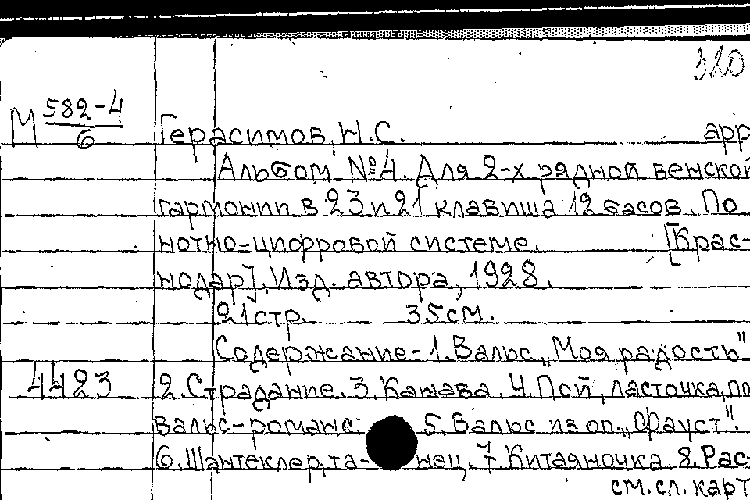 320
М 582-4
6
Герасимов, Н.С. арр
Альбом №4. Для 2-х рядной венской
гармонии в 23 и 21 клавиша 12 басов. По
нотно-цифровой системе. [Крас-
нодар], Изд. автора, 1928.
21 стр. 35 см.
Содержание-1. Вальс „Моя радость"
4423 2. Страдание. 3. Канава. 4. Пой, ласточка, по
вальс-романс 5. Вальс из оп. „Фауст".
6. Шантеклер, та- нец. 7. Китаяночка 8. Рас-
см. сл. карт